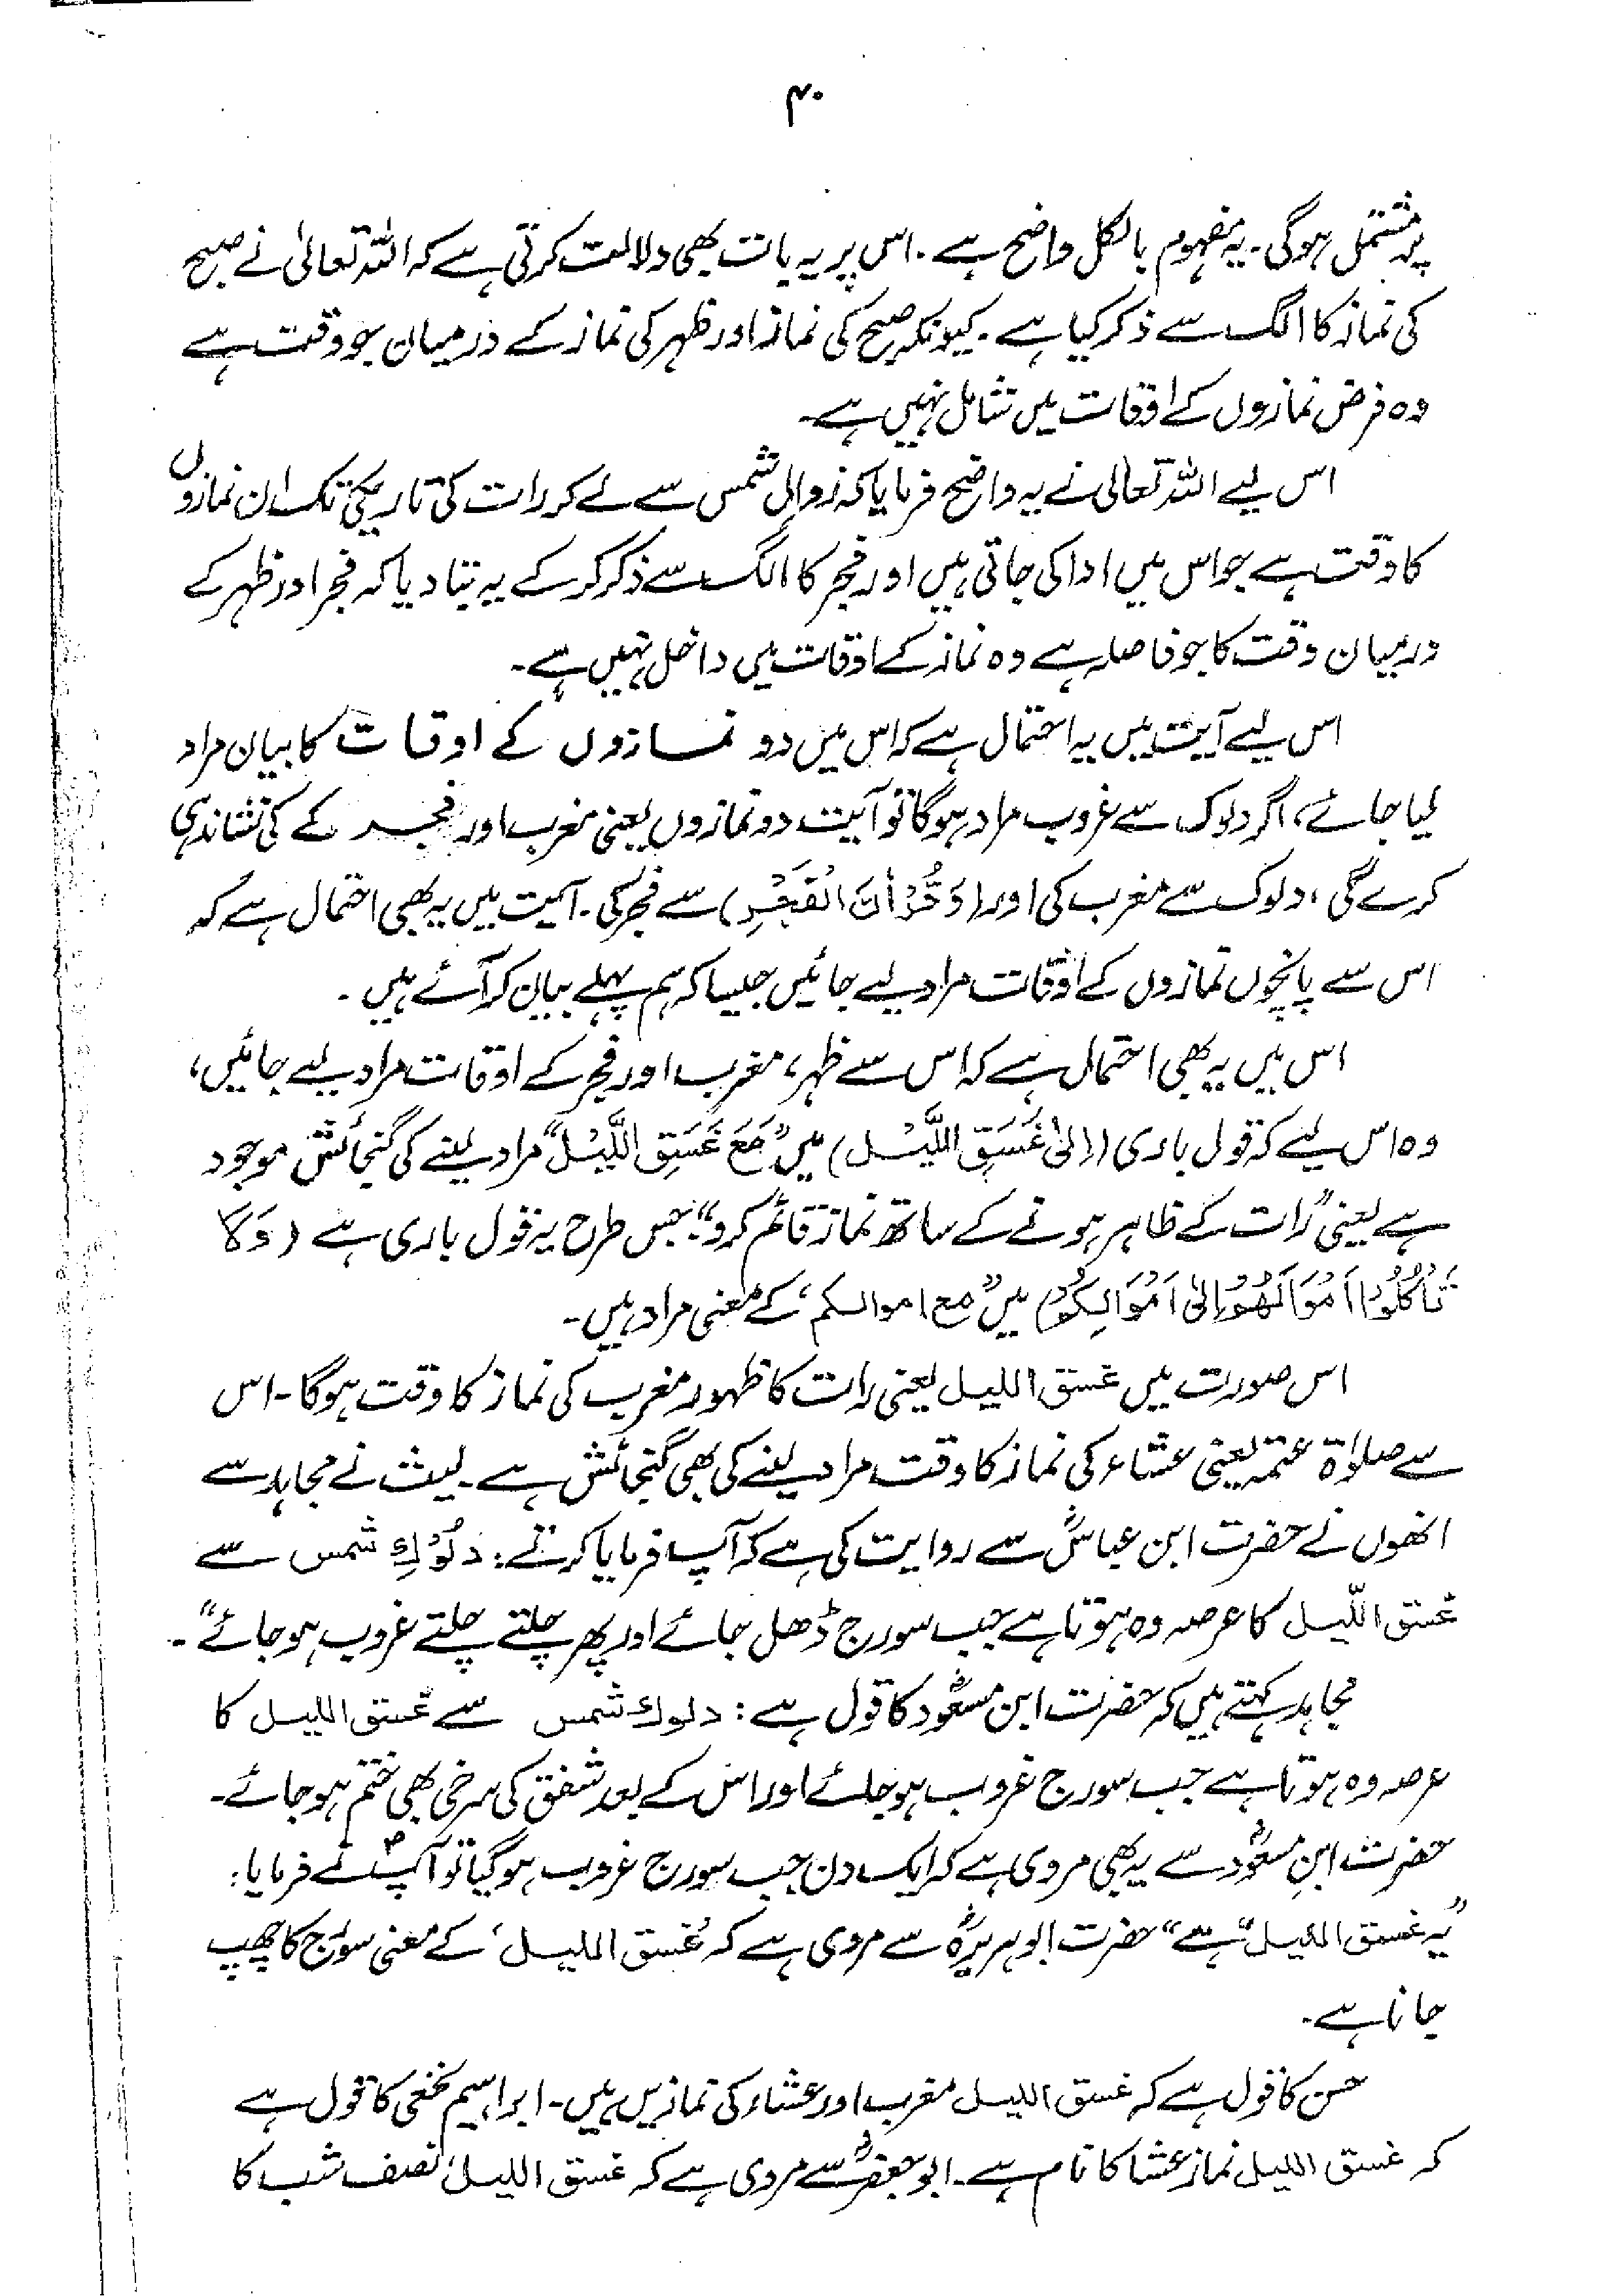 ۴۰
پر مشتمل ہوگی۔ یہ مفہوم بالکل واضح ہے۔ اس پر یہ بات بھی دلالت کرتی ہے کہ اللہ تعالیٰ نے صبح
کی نماز کا الگ سے ذکر کیا ہے۔ کیونکہ صبح کی نماز اور ظہر کی نماز کے درمیان جو وقت ہے
وہ فرض نمازوں کے اوقات میں شامل نہیں ہے۔
اس لیے اللہ تعالیٰ نے یہ واضح فرمایا کہ زوال شمس سے لے کر رات کی تاریکی تک ان نمازوں
کا وقت ہے جو اس میں ادا کی جاتی ہیں اور فجر کا الگ سے ذکر کر کے یہ بتا دیا کہ فجر اور ظہر کے
درمیان وقت کا جو فاصلہ ہے وہ نماز کے اوقات میں داخل نہیں ہے۔
اس لیے آیت میں یہ احتمال ہے کہ اس میں دو نمازوں کے اوقات کا بیان مراد
لیا جائے، اگر دلوک سے غروب مراد ہوگا تو آیت دو نمازوں یعنی مغرب اور فجر کے کی نشاندہی
کرے گی، دلوک سے مغرب کی اور (وَقُرْاٰنَ الْفَجْرِ) سے فجر کی۔ آیت میں یہ بھی احتمال ہے کہ
اس سے پانچوں نمازوں کے اوقات مراد لیے جائیں جیسا کہ ہم پہلے بیان کر آئے ہیں۔
اس میں یہ بھی احتمال ہے کہ اس سے ظہر، مغرب اور فجر کے اوقات مراد لیے جائیں،
وہ اس لیے کہ قول باری (اِلٰی غَسَقِ اللَّیْلِ) میں "مَعَ غَسَقِ اللَّیْلِ" مراد لینے کی گنجائش موجود
ہے یعنی "رات کے ظاہر ہونے کے ساتھ نماز قائم کرو"؛ جس طرح یہ قول باری ہے (وَلَا
تَاْکُلُوْا اَمْوَالَھُمْ اِلٰی اَمْوَالِکُمْ) میں "مع اموالکم" کے معنی مراد ہیں۔
اس صورت میں غسق اللیل یعنی رات کا ظہور مغرب کی نماز کا وقت ہوگا۔ اس
سے صلوٰۃ عتمہ یعنی عشاء کی نماز کا وقت مراد لینے کی بھی گنجائش ہے۔ لیث نے مجاہد سے
انھوں نے حضرت ابن عباسؓ سے روایت کی ہے کہ آپ فرمایا کرتے: "دُلُوْکِ شمس سے
غسق اللّیل کا عرصہ وہ ہوتا ہے جب سورج ڈھل جائے اور پھر چلتے چلتے غروب ہو جائے"۔
مجاہد کہتے ہیں کہ حضرت ابن مسعودؓ کا قول ہے: دلوک شمس سے غسق اللیل کا
عرصہ وہ ہوتا ہے جب سورج غروب ہو جائے اور اس کے بعد شفق کی سرخی بھی ختم ہو جائے۔
حضرت ابنِ مسعودؓ سے یہ بھی مروی ہے کہ ایک دن جب سورج غروب ہو گیا تو آپؓ نے فرمایا:
"یہ غسق اللیل" ہے" حضرت ابو ہریرہؓ سے مروی ہے کہ 'غسق اللیل' کے معنی سورج کا چھپ
جانا ہے۔
حسن کا قول ہے کہ غسق اللیل مغرب اور عشاء کی نمازیں ہیں۔ ابراہیم نخعی کا قول ہے
کہ غسق اللیل نماز عشا کا نام ہے۔ ابو جعفرؓ سے مروی ہے کہ غسق اللیل، نصف شب کا